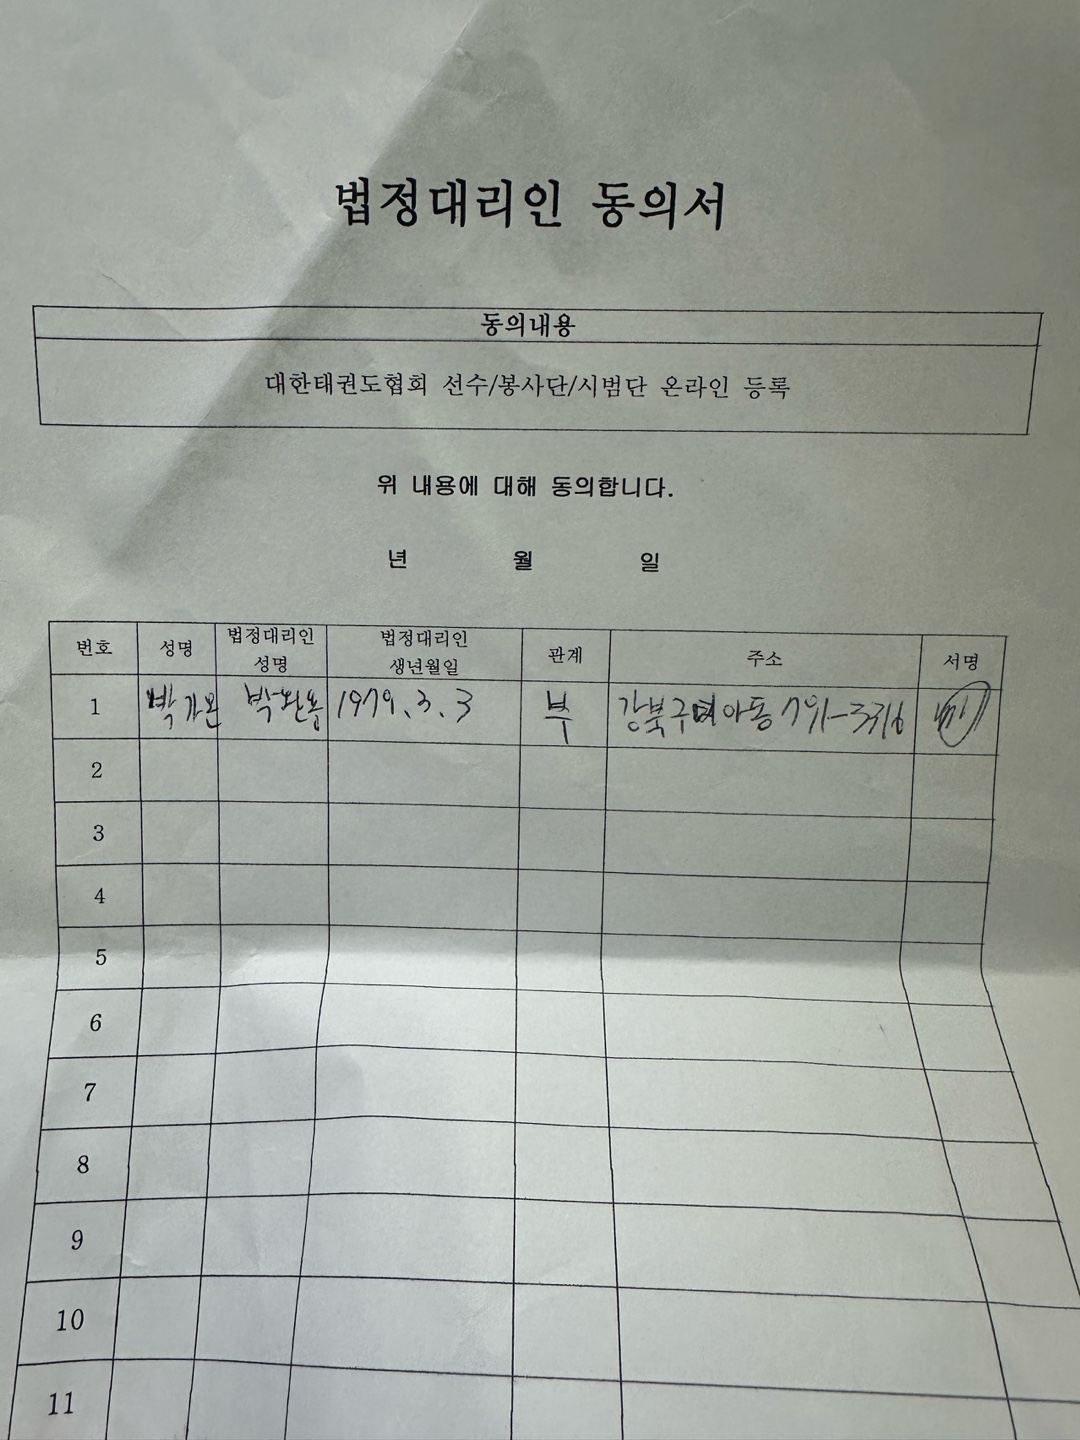 법정대리인 동의서
동의내용
대한태권도협회 선수/봉사단/시범단 온라인 등록
위 내용에 대해 동의합니다.
년 월 일
번호 성명 법정대리인 성명 법정대리인 생년월일 관계 주소 서명
1 박가온 박완용 1979. 3. 3 부 강북구 미아동 791-3376
2
3
4
5
6
7
8
9
10
11